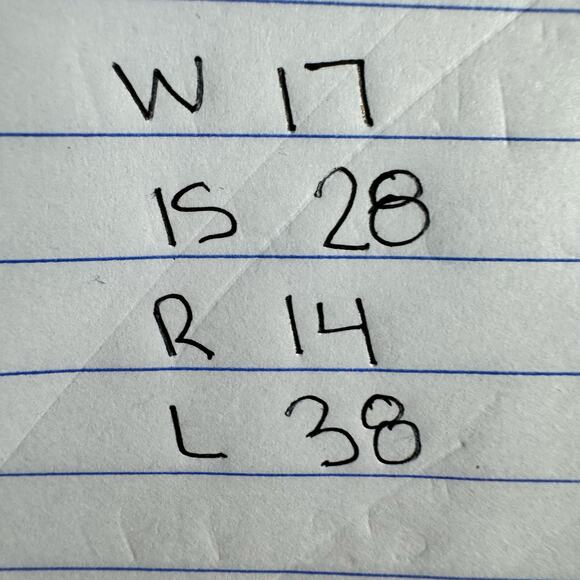 W 17
IS 28
R 14
L 38